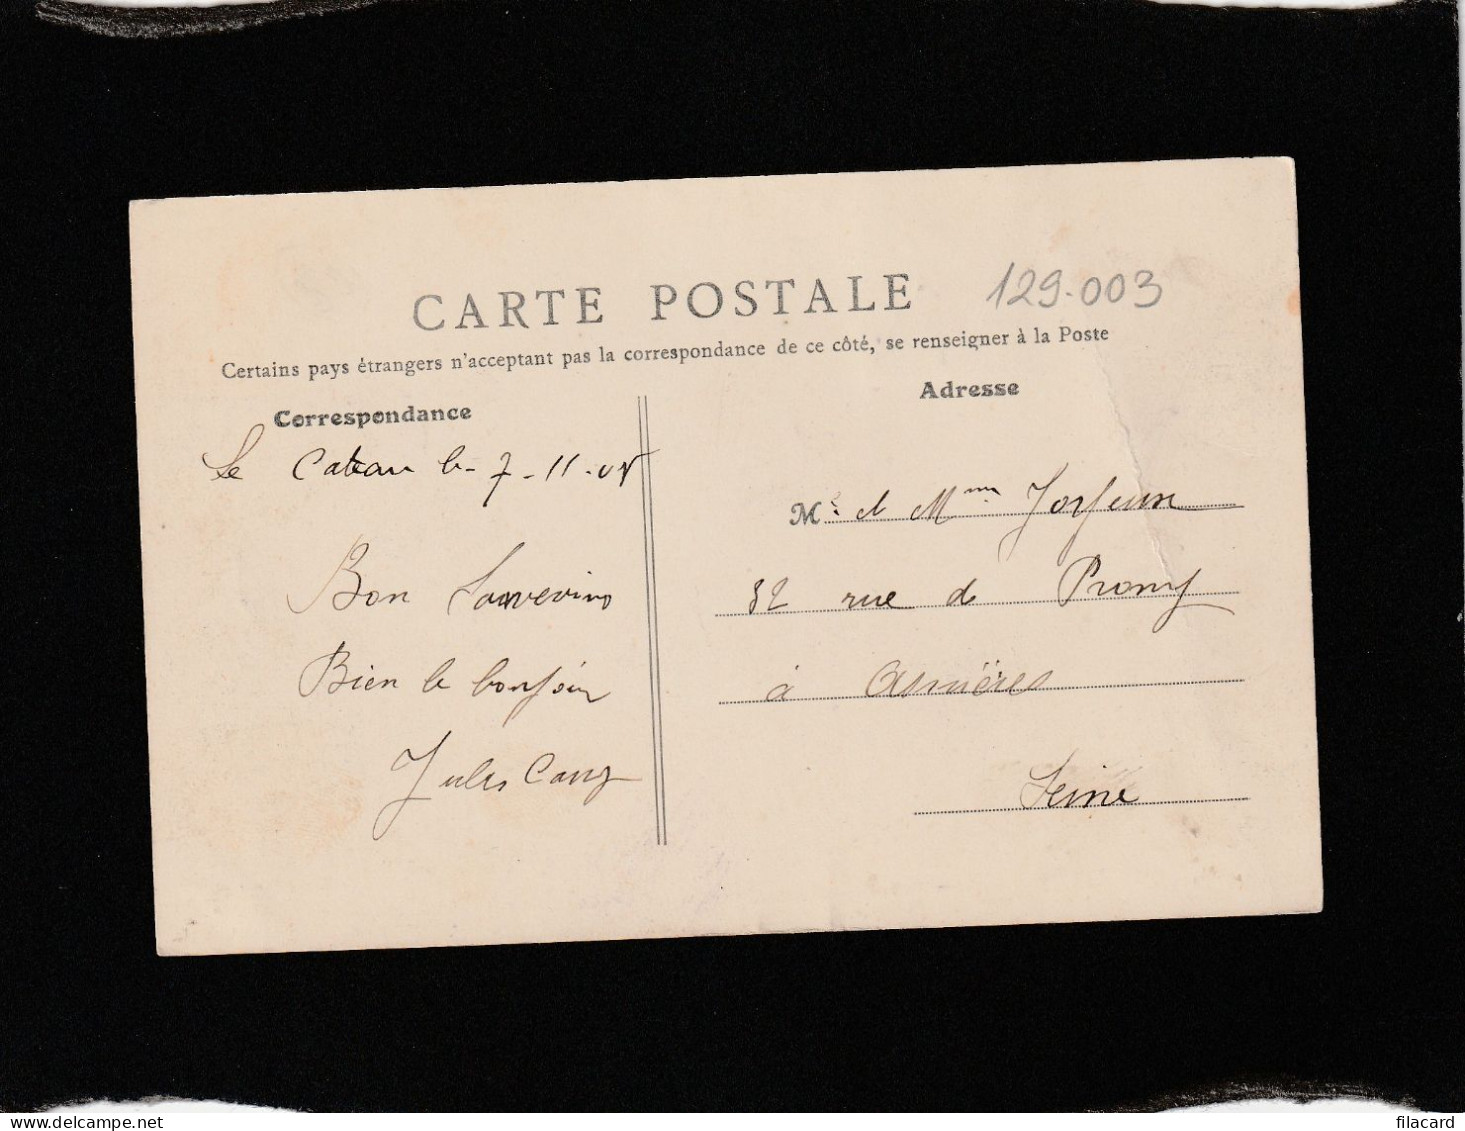 CARTE POSTALE
129-003
Certains pays étrangers n'acceptant pas la correspondance de ce côté, se renseigner à la Poste
Correspondance
Le Cateau le 7-11-05
Bon
Bien le bonjour
Jules
Adresse
Mr et Mme Joyeux
rue de Prony
à Asnières
Seine
filacard